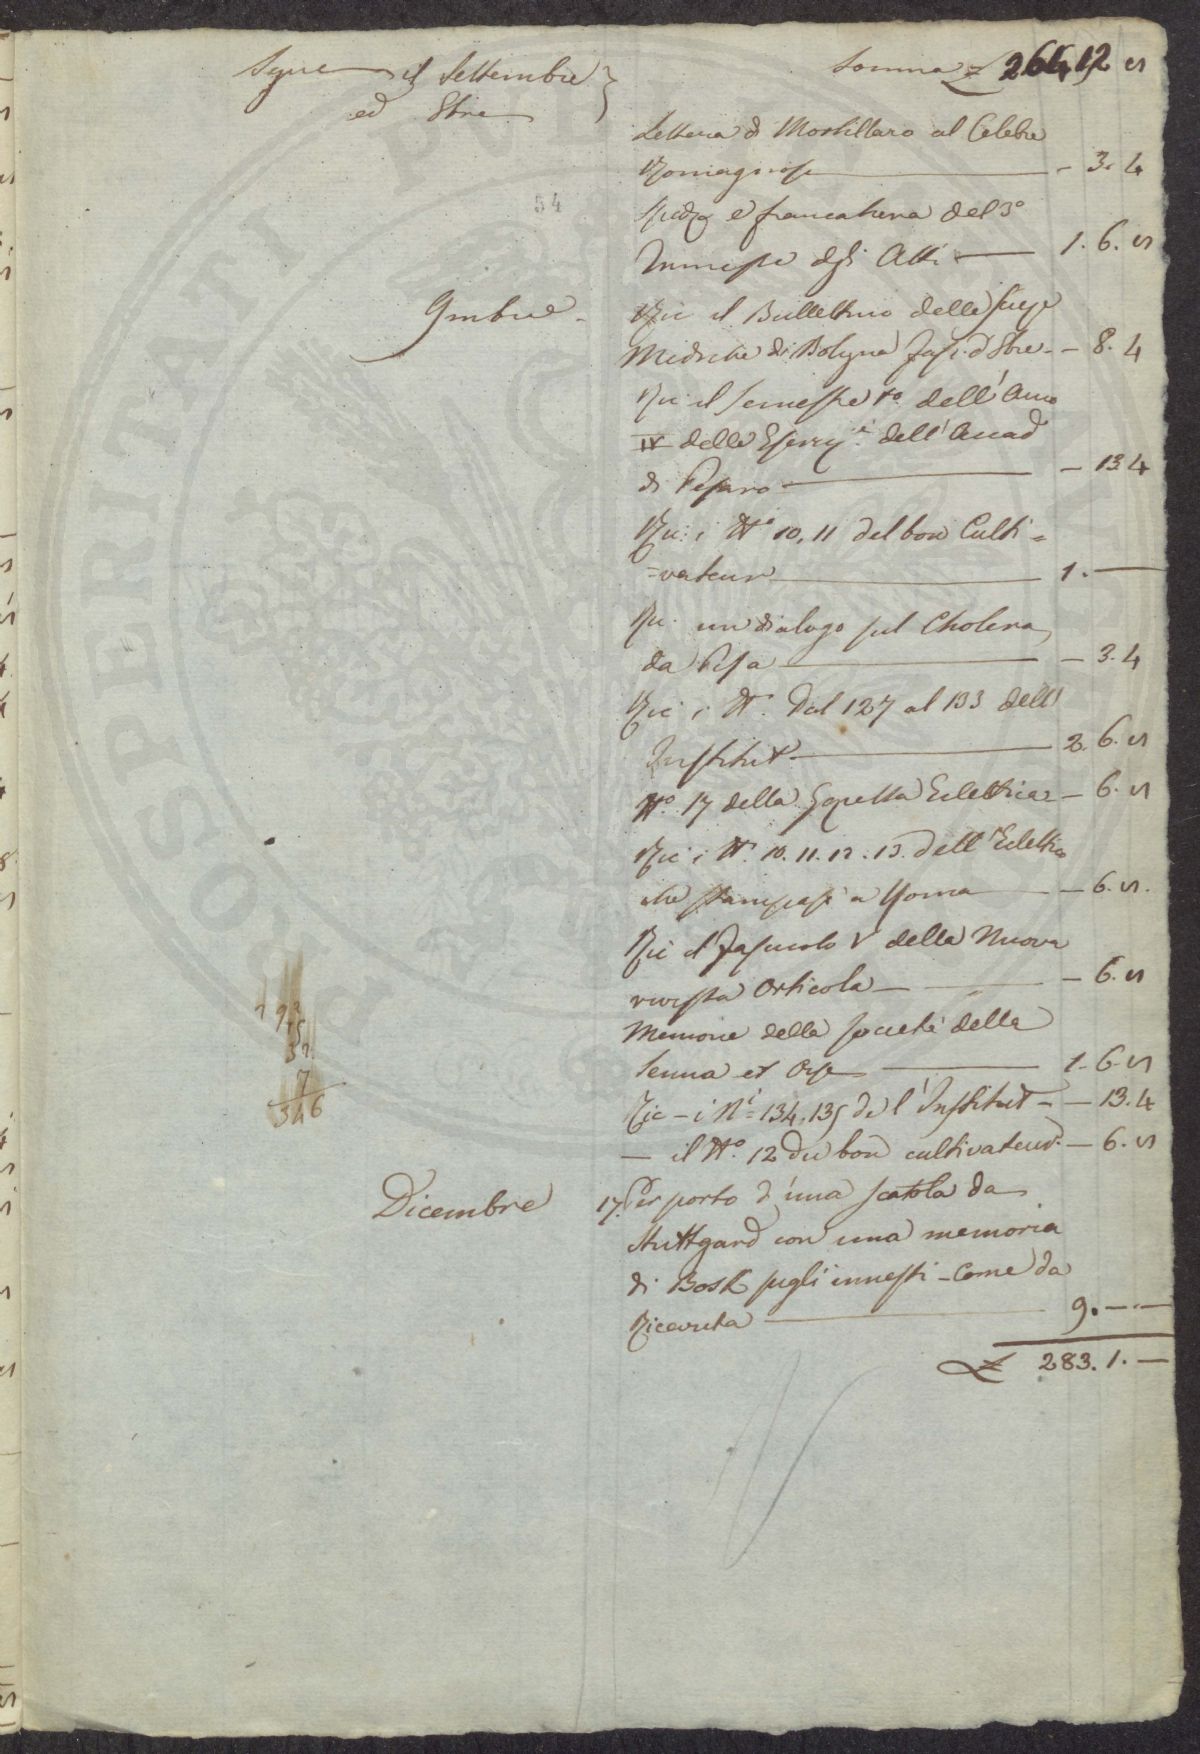 Segue il Settembre Somma £ 264.12 ς
ed 8bre
Lettera di Mortillaro al Celebre
Romagnosi - 3. 4
54
e francatura del 3°
Trimestre degli Atti 1. 6. ς
9mbre - Ric il Bullettino delle Scize
Mediche di Bologna Fasc. d 8bre - - 8. 4
Ric il Semestre 1° dell'Anno
IV delle Eserciti dell'Accad
di Pesaro - 13 4
Ric: i N° 10, 11 del bon Culti=
=vateur 1. —
Ric. un dialogo sul Cholera
da Pisa - 3. 4
Ric i N. Dal 127 al 133 dell'
Institut 2. 6. ς
N° 17 della Gazzetta Eclettica - - 6. ς
Ric i N. 10. 11. 12. 13. dell'Eclettico
che stampasi a Roma - 6. ς.
Ric il Fascicolo V della Nuova
rivista Orticola - 6. ς
Memorie della Società della
Senna et Oise 1. 6 ς
Ric - i Ni = 134, 135 de l'Institut - - 13. 4
— il N° 12 du bon cultivateur. - 6. ς
193
15
31
7
346
Dicembre 17. Per porto d'una scatola da
Stuttgard con una memoria
di Bosk sugli innesti - Come da
Ricevuta 9. — . —
£ 283. 1. —